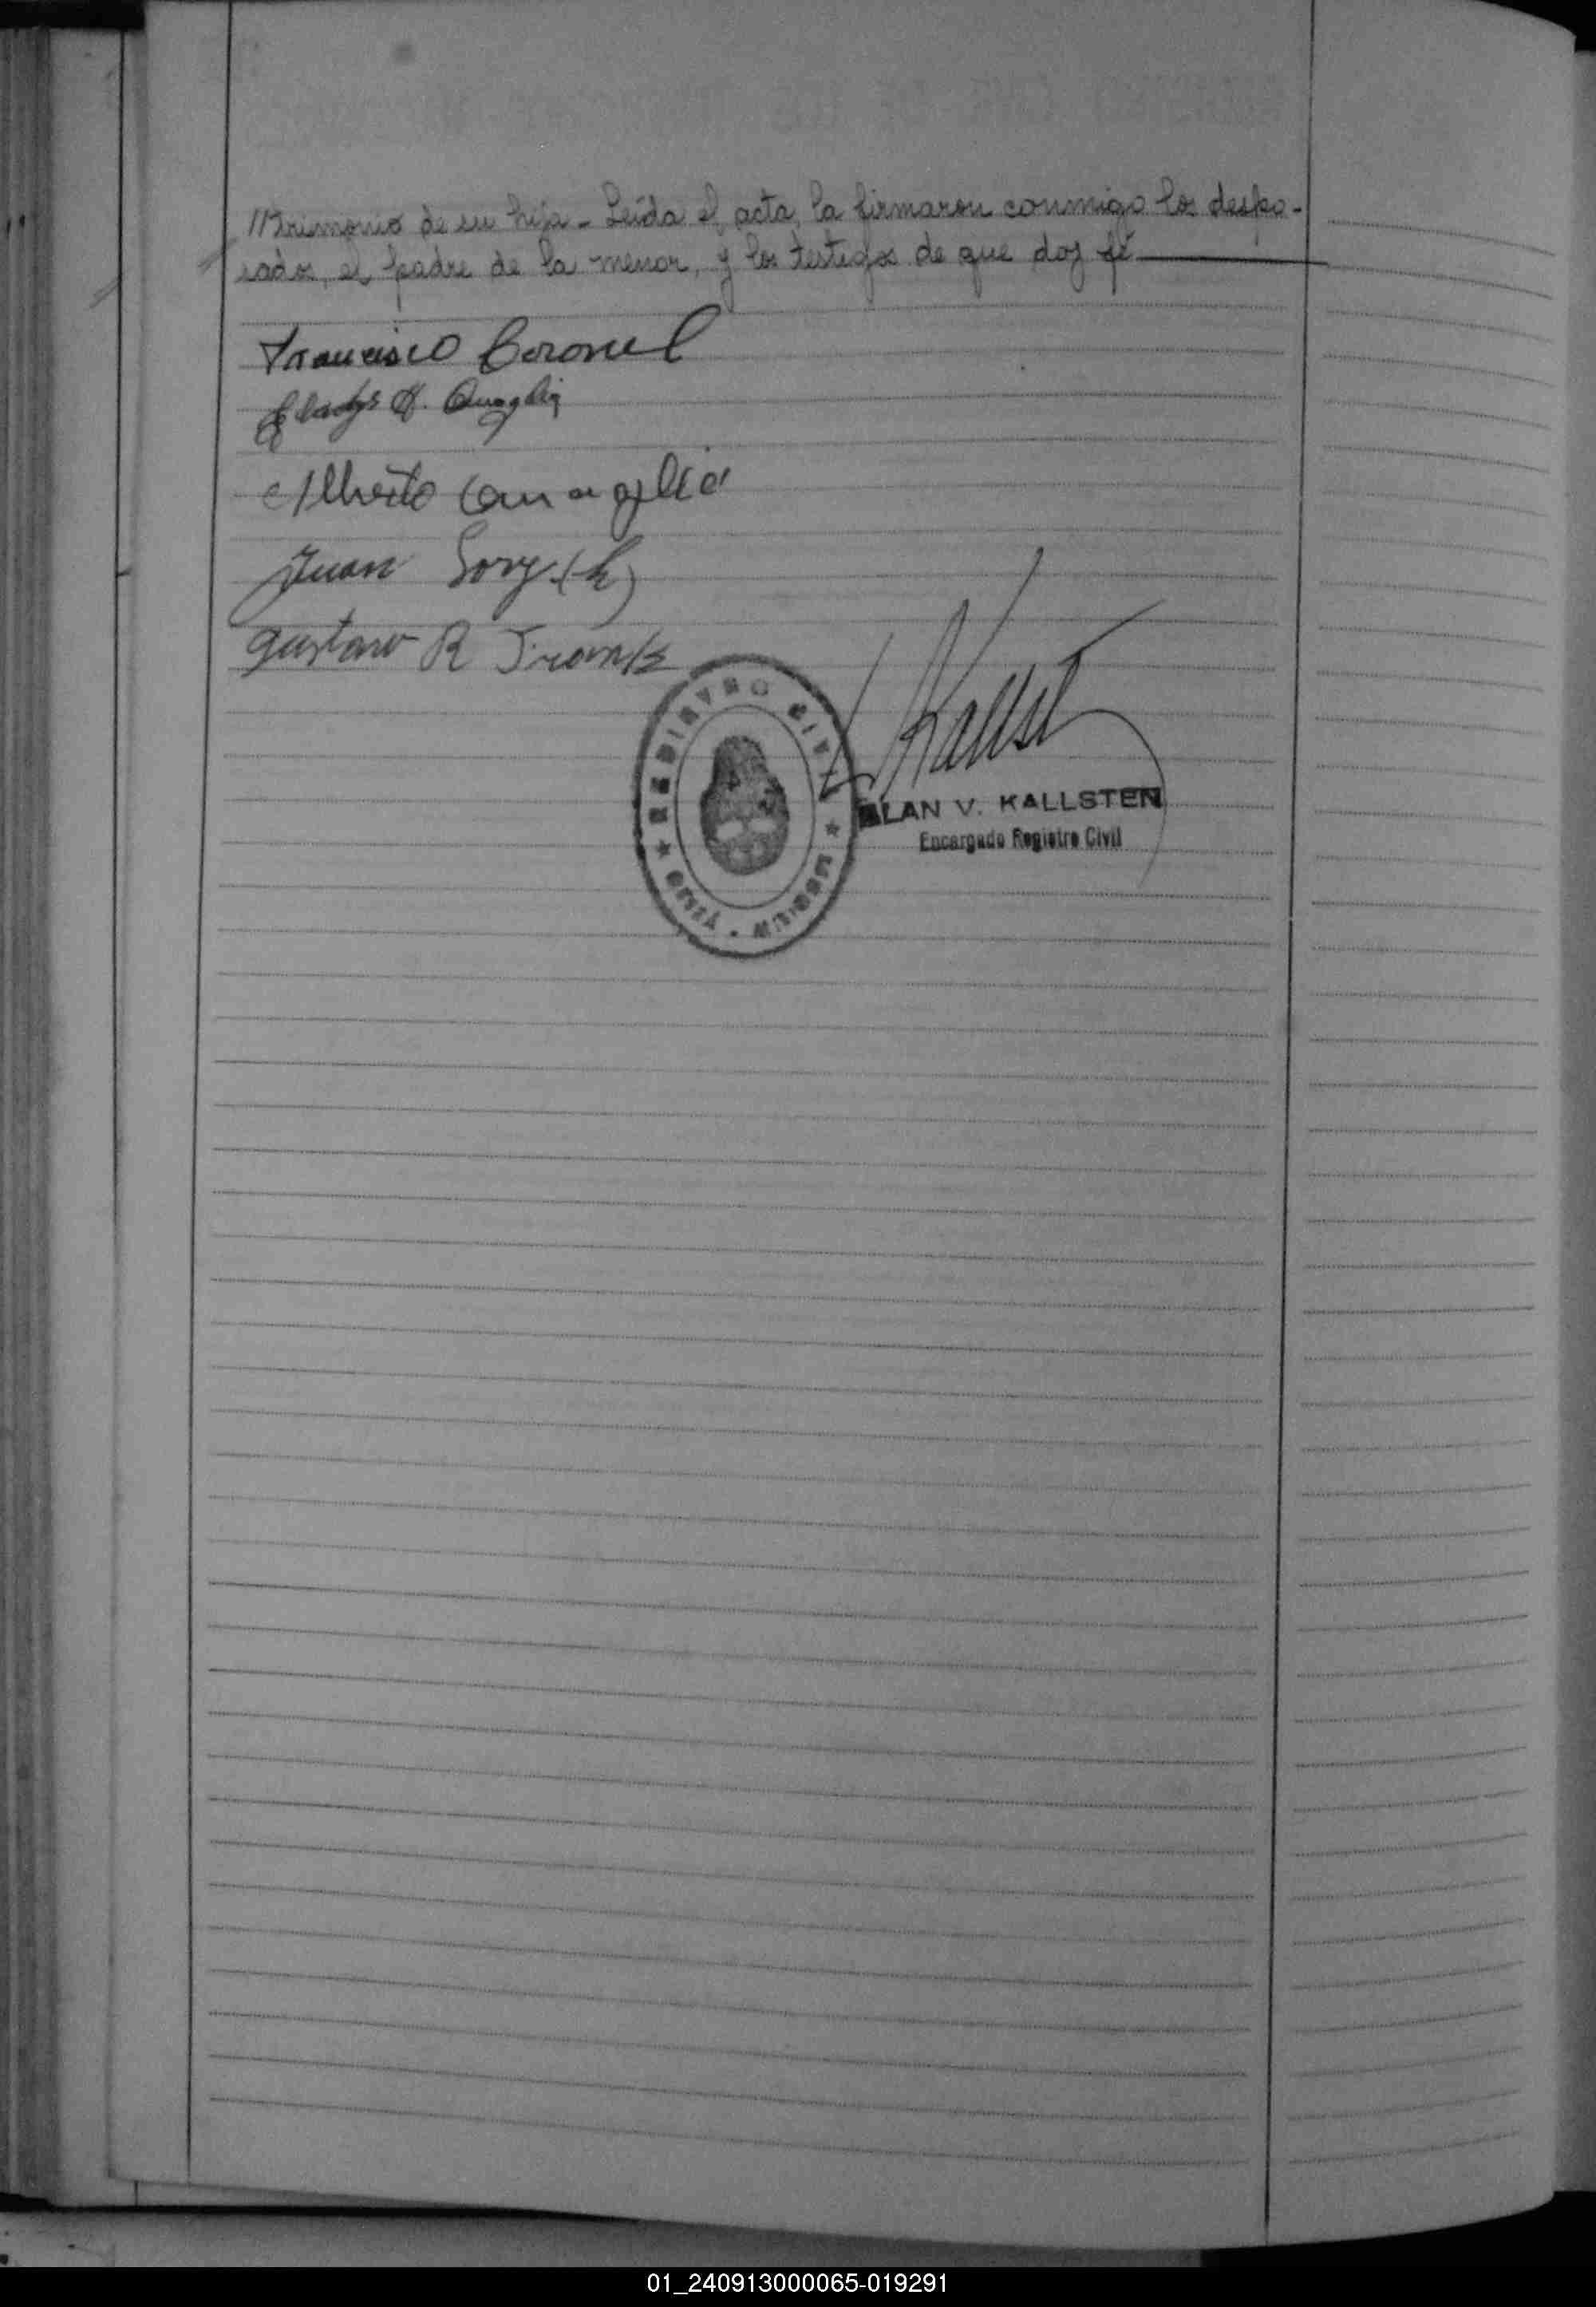 //trimonio de su hija - Leída el acta, la firmaron conmigo los despo-
sados, el padre de la menor, y los testigos de que doy fé
Francisco Coronel
Gladys H. Quaglia
Alberto Quaglia
Juan (h)
Gustavo R
REGISTRO CIVIL
ALAN V. KALLSTEN
Encargado Registro Civil
01_240913000065-019291